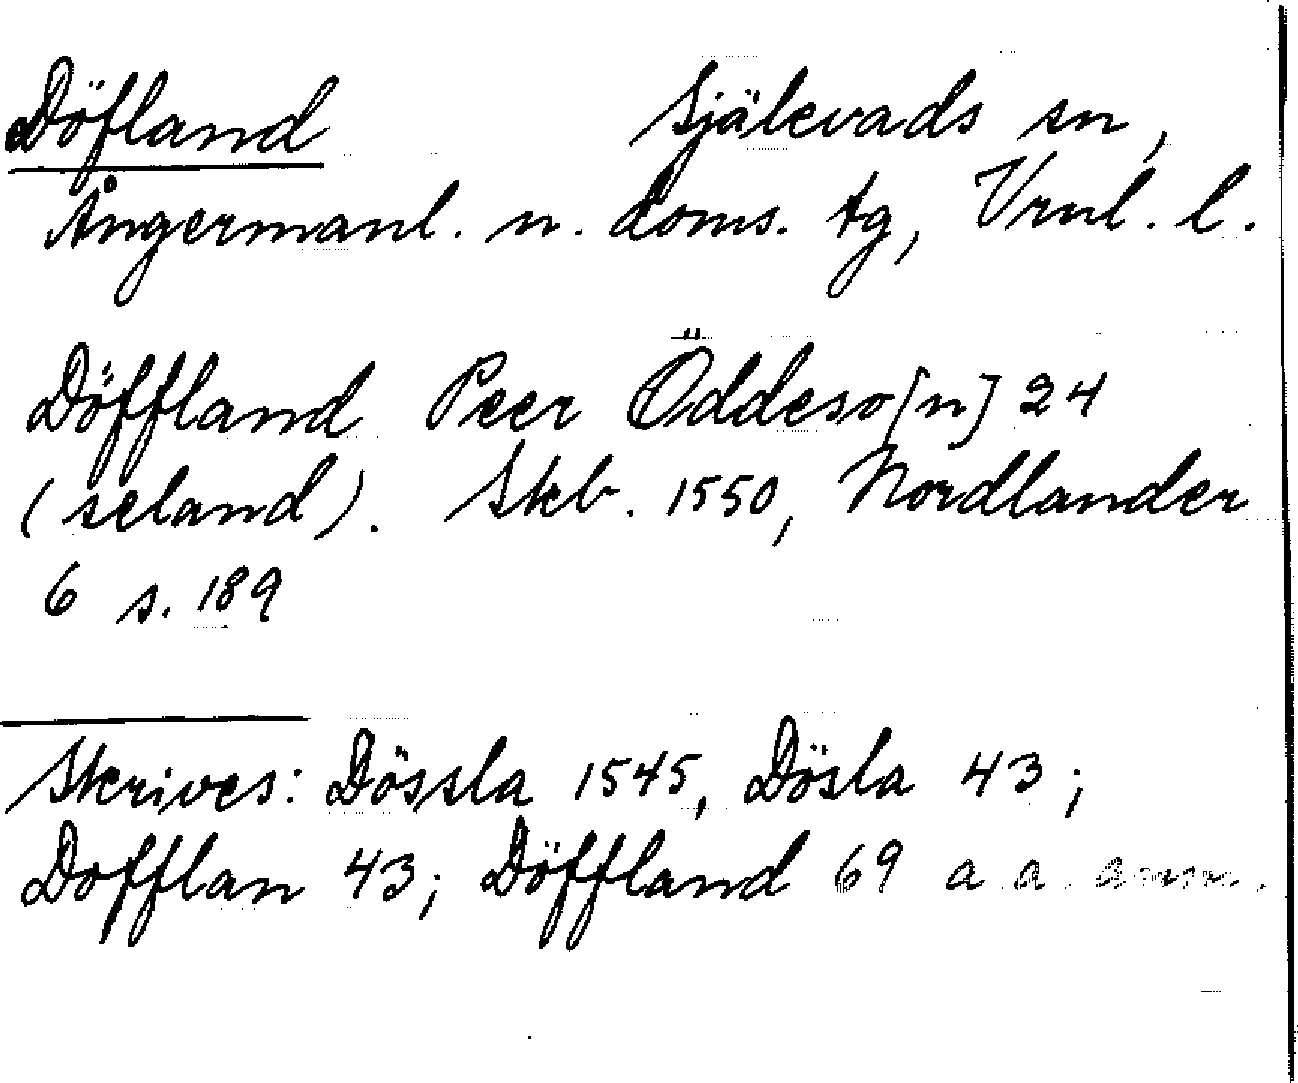 Döfland Självads sn,
Ångermanl. n. doms. tg, Vrnl. l.
Döffland Peer Öddeso[n] 24
(seland). Skb. 1550, Nordlander
6 s. 189
Skrives: Dössla 1545, Dösla 43;
Dofflan 43; Döffland 69 a a anm.